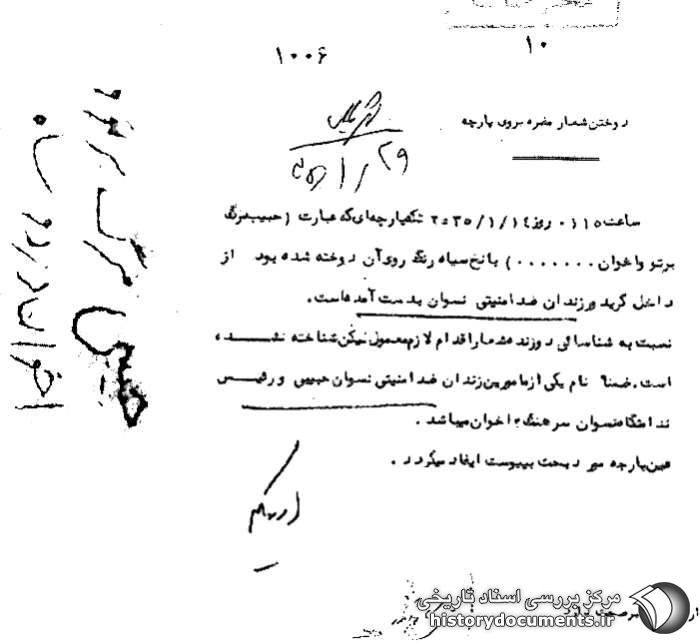 ۱۰
۱۰۰۶
دوختن شعار مضره بروی پارچه
۲۹
ساعت ۰۱۱۵ روز ۲۵۳۵/۱/۱٤ تکه پارچه ای که عبارت (حبیب مرگ
برتو واخوان ۰۰۰۰۰۰۰) با نخ سیاه رنگ روی آن دوخته شده بود از
داخل کریدور زندان ضد امنیتی نسوان بدست آمده است.
نسبت به شناسائی دوزنده شعار اقدام لازم معمول لیکن شناخته نشده
است. ضمناً نام یکی از مامورین زندان ضد امنیتی نسوان حبیبی و رئیس
ندامتگاه نسوان سرهنگ ۲ اخوان میباشد.
عین پارچه مورد بحث بپیوست ایفاد میگردد.
حبیب مرگ
اخوان
مرکز بررسی اسناد تاریخی
historydocuments.ir